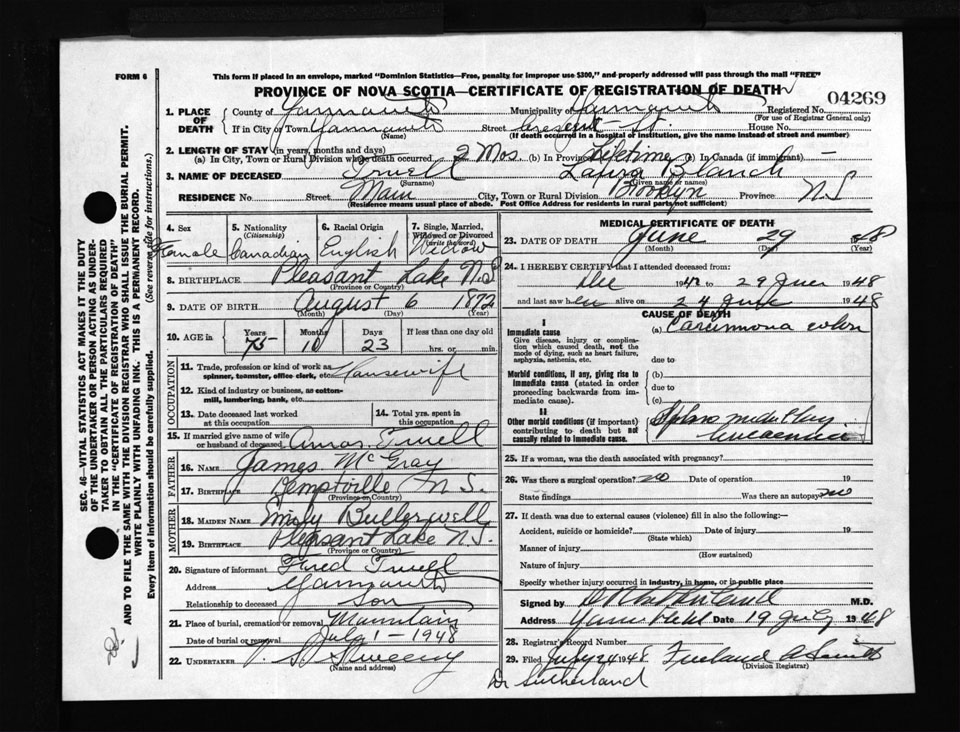 FORM 6
This form if placed in an envelope, marked "Dominion Statistics—Free, penalty for improper use $300," and properly addressed will pass through the mail "FREE"
PROVINCE OF NOVA SCOTIA—CERTIFICATE OF REGISTRATION OF DEATH
04269
1. PLACE OF DEATH County of Yarmouth Municipality of Yarmouth Registered No.
(For use of Registrar General only)
If in City or Town Yarmouth Street Cresent St. House No.
(Name) (If death occurred in a hospital of institution, give the name instead of street and number)
2. LENGTH OF STAY (in years, months and days)
(a) In City, Town or Rural Division where death occurred 2 Mos. (b) In Province Lifetime (c) In Canada (if immigrant) —
3. NAME OF DECEASED Laura Blanch
(Surname) (Given name or names)
RESIDENCE No. Street Main City, Town or Rural Division Province N S
(Residence means usual place of abede. Post Office Address for residents in rural parts not sufficient)
4. Sex 5. Nationality (Citizenship) 6. Racial Origin 7. Single, Married, Widowed or Divorced (write the word)
Female Canadian English Widow
8. BIRTHPLACE Pleasant Lake N.S
(Province or Country)
9. DATE OF BIRTH August 6 1872
(Month) (Day) (Year)
10. AGE in Years Months Days If less than one day old
75 10 23 hrs. or min.
OCCUPATION
11. Trade, profession or kind of work as spinner, teamster, office clerk, etc. Housewife
12. Kind of industry or business, as cotton-mill, lumbering, bank, etc.
13. Date deceased last worked at this occupation
14. Total yrs. spent in this occupation
15. If married give name of wife or husband of deceased Amos
FATHER
16. NAME James McGray
17. BIRTHPLACE Kemptville N.S.
(Province or Country)
MOTHER
18. MAIDEN NAME Emily Butlerwell
19. BIRTHPLACE Pleasant Lake N.S.
(Province or Country)
20. Signature of informant Fred
Address Yarmouth
Relationship to deceased Son
21. Place of burial, cremation or removal Mountain
Date of burial or removal July 1 - 1948
22. UNDERTAKER V. S. Sweeny
(Name and address)
MEDICAL CERTIFICATE OF DEATH
23. DATE OF DEATH June 29 1948
(Month) (Day) (Year)
24. I HEREBY CERTIFY that I attended deceased from:
Dec 194 to 29 June 1948
and last saw her alive on 24 June 1948
CAUSE OF DEATH
I
Immediate cause (a) Carcinoma colon
Give disease, injury or complication which caused death, not the mode of dying, such as heart failure, asphyxia, asthenia, etc. due to
Morbid conditions, if any, giving rise to immediate cause (stated in order proceeding backwards from immediate cause). (b)
due to
(c)
II
Other morbid conditions (if important) contributing to death but not causally related to immediate cause.
25. If a woman, was the death associated with pregnancy?
26. Was there a surgical operation? no Date of operation 19
State findings Was there an autopsy no
27. If death was due to external causes (violence) fill in also the following:
Accident, suicide or homicide? Date of injury 19
(State which)
Manner of injury
(How sustained)
Nature of injury
Specify whether injury occurred in industry, in home, or in public place
Signed by M.D.
Address Date 19 July 1948
28. Registrar's Record Number
29. Filed July 24 1948 Freeland
(Division Registrar)
Dr Sutherland
SEC. 46—VITAL STATISTICS ACT MAKES IT THE DUTY
OF THE UNDERTAKER OR PERSON ACTING AS UNDER-
TAKER TO OBTAIN ALL THE PARTICULARS REQUIRED
IN THE "CERTIFICATE OF REGISTRATION OF DEATH"
AND TO FILE THE SAME WITH THE DIVISION REGISTRAR WHO SHALL ISSUE THE BURIAL PERMIT.
WRITE PLAINLY WITH UNFADING INK. THIS IS A PERMANENT RECORD.
Every item of information should be carefully supplied. (See reverse side for instructions.)